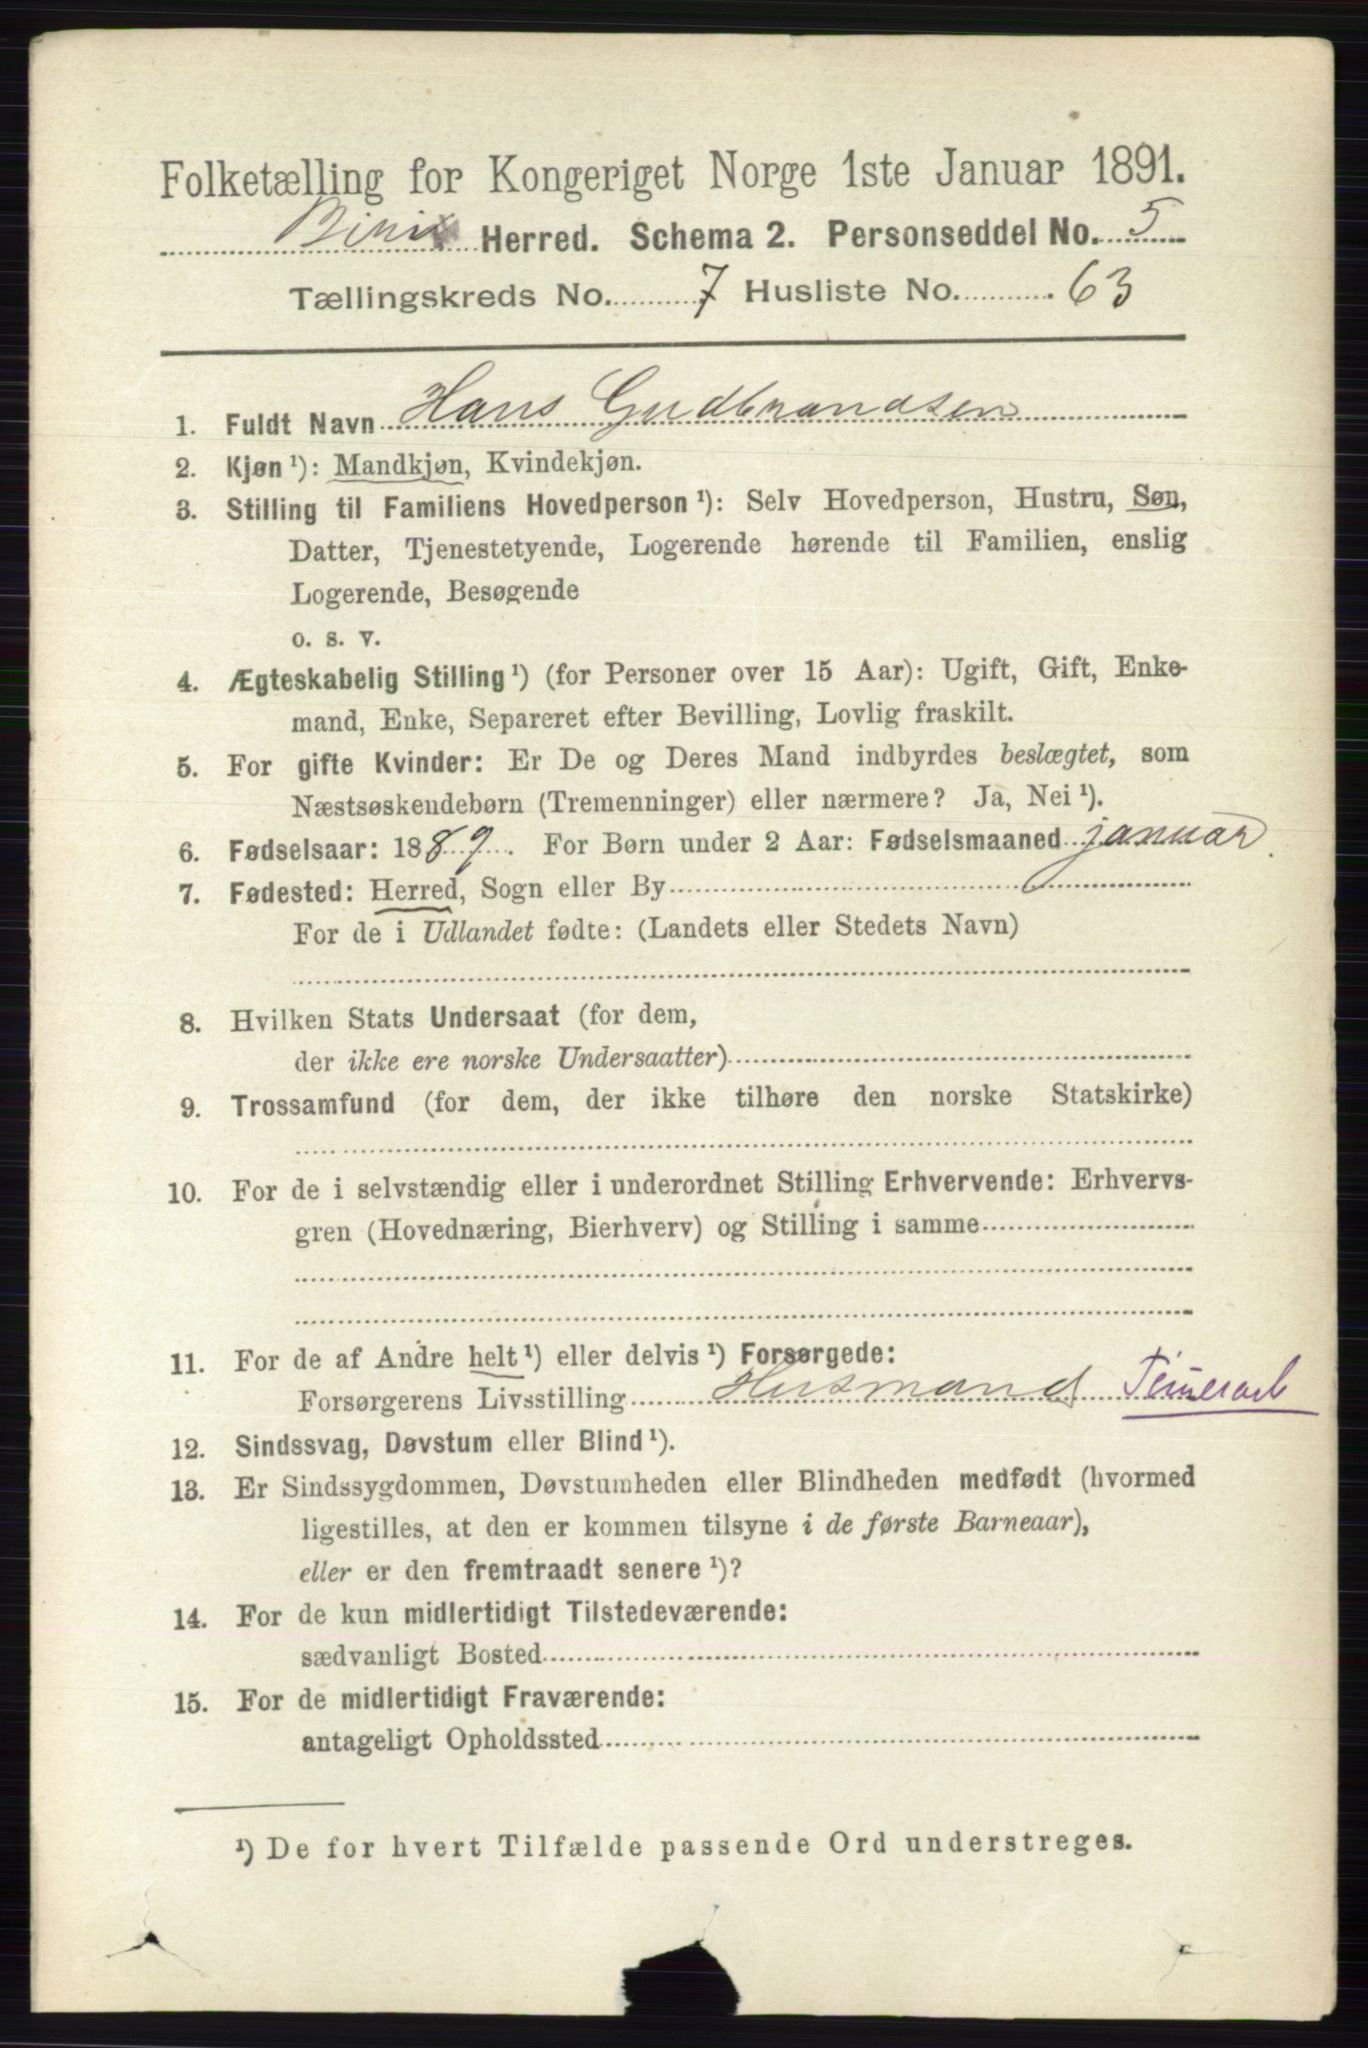 Folketælling for Kongeriget Norge 1ste Januar 1891.
Herred. Schema 2. Personseddel No. 5
Tællingskreds No. 7 Husliste No. 63
1. Fuldt Navn Hans Gudbrandsen
2. Kjøn ¹): Mandkjøn, Kvindekjøn.
3. Stilling til Familiens Hovedperson ¹): Selv Hovedperson, Hustru, Søn,
Datter, Tjenestetyende, Logerende hørende til Familien, enslig
Logerende, Besøgende
o. s. v.
4. Ægteskabelig Stilling ¹) (for Personer over 15 Aar): Ugift, Gift, Enke-
mand, Enke, Separeret efter Bevilling, Lovlig fraskilt.
5. For gifte Kvinder: Er De og Deres Mand indbyrdes beslægtet, som
Næstsøskendebørn (Tremenninger) eller nærmere? Ja, Nei ¹).
6. Fødselsaar: 1889. For Børn under 2 Aar: Fødselsmaaned januar.
7. Fødested: Herred, Sogn eller By
For de i Udlandet fødte: (Landets eller Stedets Navn)
8. Hvilken Stats Undersaat (for dem,
der ikke ere norske Undersaatter)
9. Trossamfund (for dem, der ikke tilhøre den norske Statskirke)
10. For de i selvstændig eller i underordnet Stilling Erhvervende: Erhvervs-
gren (Hovednæring, Bierhverv) og Stilling i samme
11. For de af Andre helt ¹) eller delvis ¹) Forsørgede:
Forsørgerens Livsstilling Husmand
12. Sindssvag, Døvstum eller Blind ¹).
13. Er Sindssygdommen, Døvstumheden eller Blindheden medfødt (hvormed
ligestilles, at den er kommen tilsyne i de første Barneaar),
eller er den fremtraadt senere ¹)?
14. For de kun midlertidigt Tilstedeværende:
sædvanligt Bosted
15. For de midlertidigt Fraværende:
antageligt Opholdssted
¹) De for hvert Tilfælde passende Ord understreges.